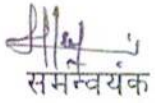 समन्वयंक